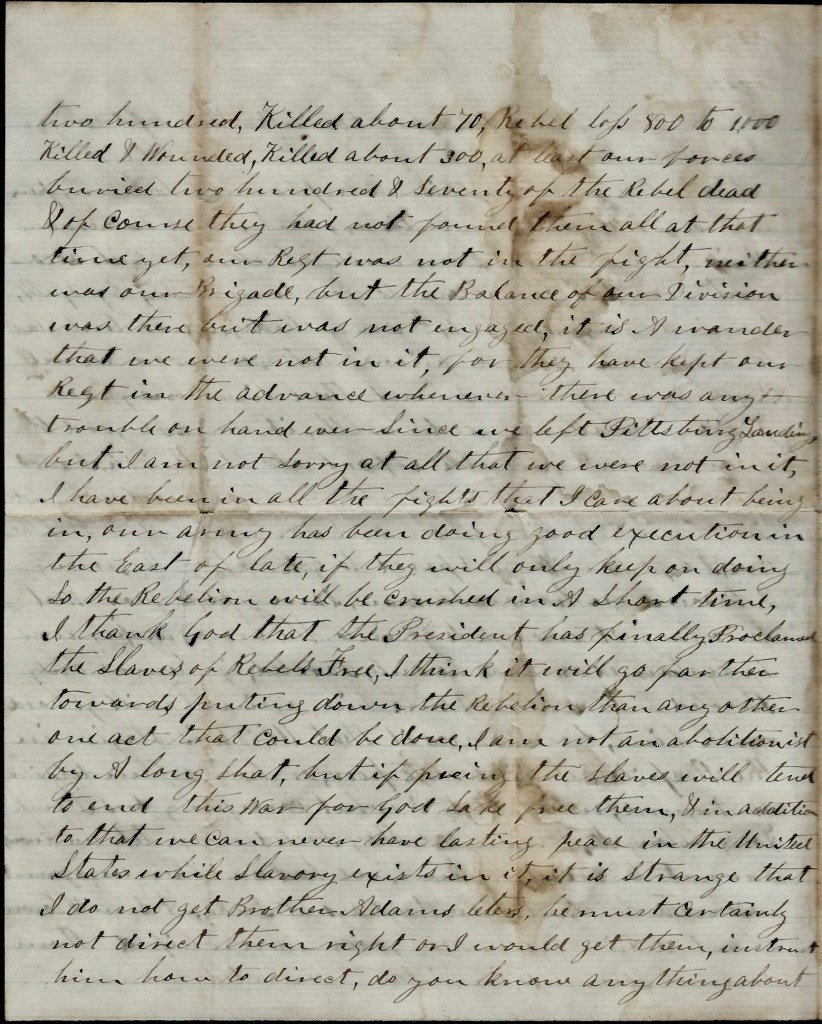 two hundred, Killed about 70, Rebel loss 800 to 1000
Killed & Wounded, Killed about 300, at least our forces
buried two hundred & Seventy of the Rebel dead
& of course they had not found them all at that
time yet, our Regt was not in the fight, neither
was our Brigade, but the Balance of our Division
was there but was not engaged, it is A wonder
that we were not in it, for they have kept our
Regt in the advance whenever there was any
trouble on hand ever Since we left Pittsburg Landing,
but I am not Sorry at all that we were not in it,
I have been in all the fights that I care about being
in, our army has been doing good execution in
the East of late, if they will only keep on doing
So the Rebelion will be crushed in A Short time,
I thank God that the President has finally Proclaimed
the Slaves of Rebels Free, I think it will go farther
towards puting down the Rebelion than any other
one act that could be done, I am not an abolitionist
by A long Shot, but if freeing the Slaves will tend
to end this War for God Sake free them, & in addition
to that we can never have lasting peace in the United
States while Slavory exists in it, it is Strange that
I do not get Brother Adams leters, he must certainly
not direct them right or I would get them, instruct
him how to direct, do you know anything about